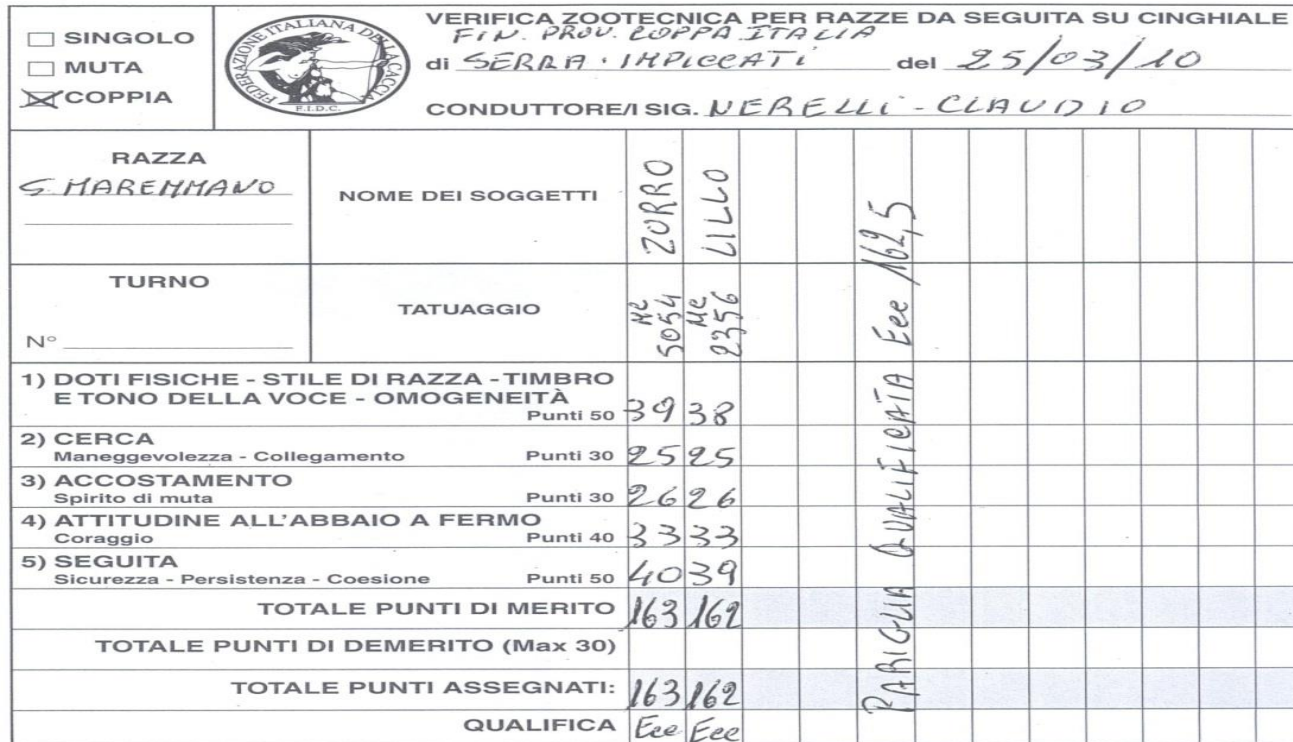 SINGOLO
MUTA
COPPIA
FEDERAZIONE ITALIANA DELLA CACCIA
F.I.D.C.
VERIFICA ZOOTECNICA PER RAZZE DA SEGUITA SU CINGHIALE
FIN. PROV. COPPA ITALIA
di SERRA · IMPICCATI del 25/03/10
CONDUTTORE/I SIG. NERELLI - CLAUDIO
RAZZA
S. MAREMMANO
NOME DEI SOGGETTI
ZORRO
LILLO
TURNO
N°
TATUAGGIO
MC 5054
MC 2356
PARIGLIA QUALIFICATA Ecc 162,5
1) DOTI FISICHE - STILE DI RAZZA - TIMBRO
E TONO DELLA VOCE - OMOGENEITÀ
Punti 50 39 38
2) CERCA
Maneggevolezza - Collegamento Punti 30 25 25
3) ACCOSTAMENTO
Spirito di muta Punti 30 26 26
4) ATTITUDINE ALL'ABBAIO A FERMO
Coraggio Punti 40 33 33
5) SEGUITA
Sicurezza - Persistenza - Coesione Punti 50 40 39
TOTALE PUNTI DI MERITO 163 162
TOTALE PUNTI DI DEMERITO (Max 30)
TOTALE PUNTI ASSEGNATI: 163 162
QUALIFICA Ecc Ecc